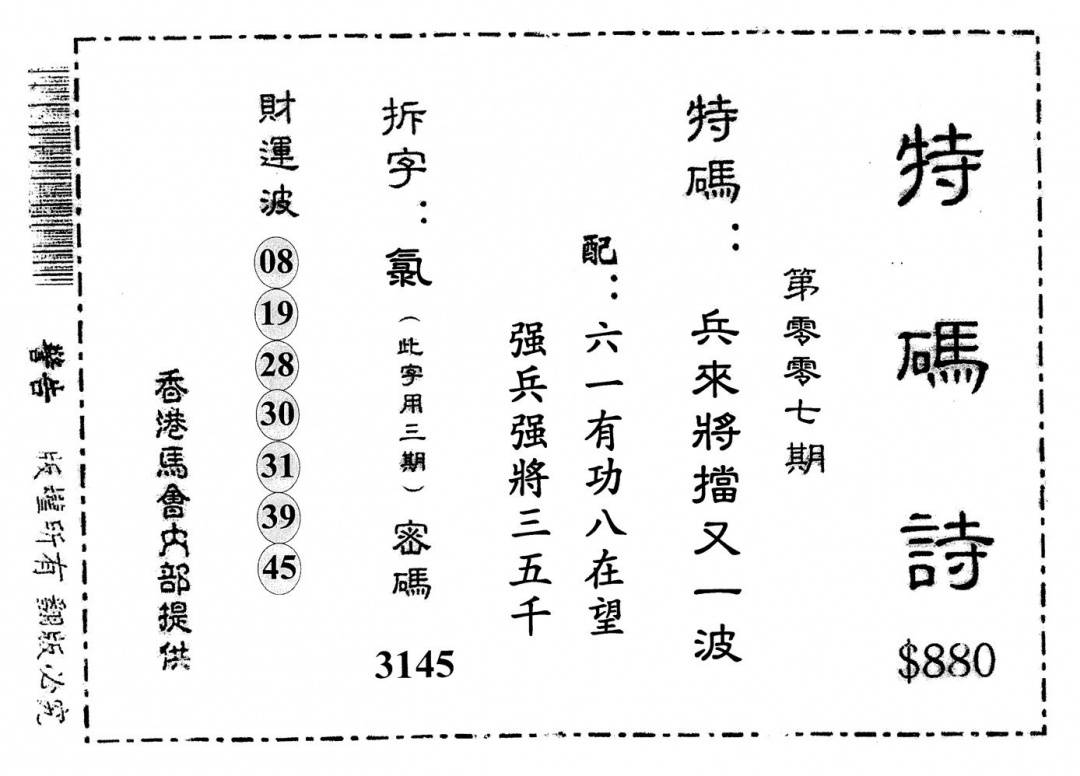 特碼詩
$880
第零零七期
特碼：兵來將擋又一波
配：六一有功八在望
强兵强將三五千
拆字：氯（此字用三期）密碼
3145
財運波 08 19 28 30 31 39 45
香港馬會内部提供
警告 版權所有 翻版必究